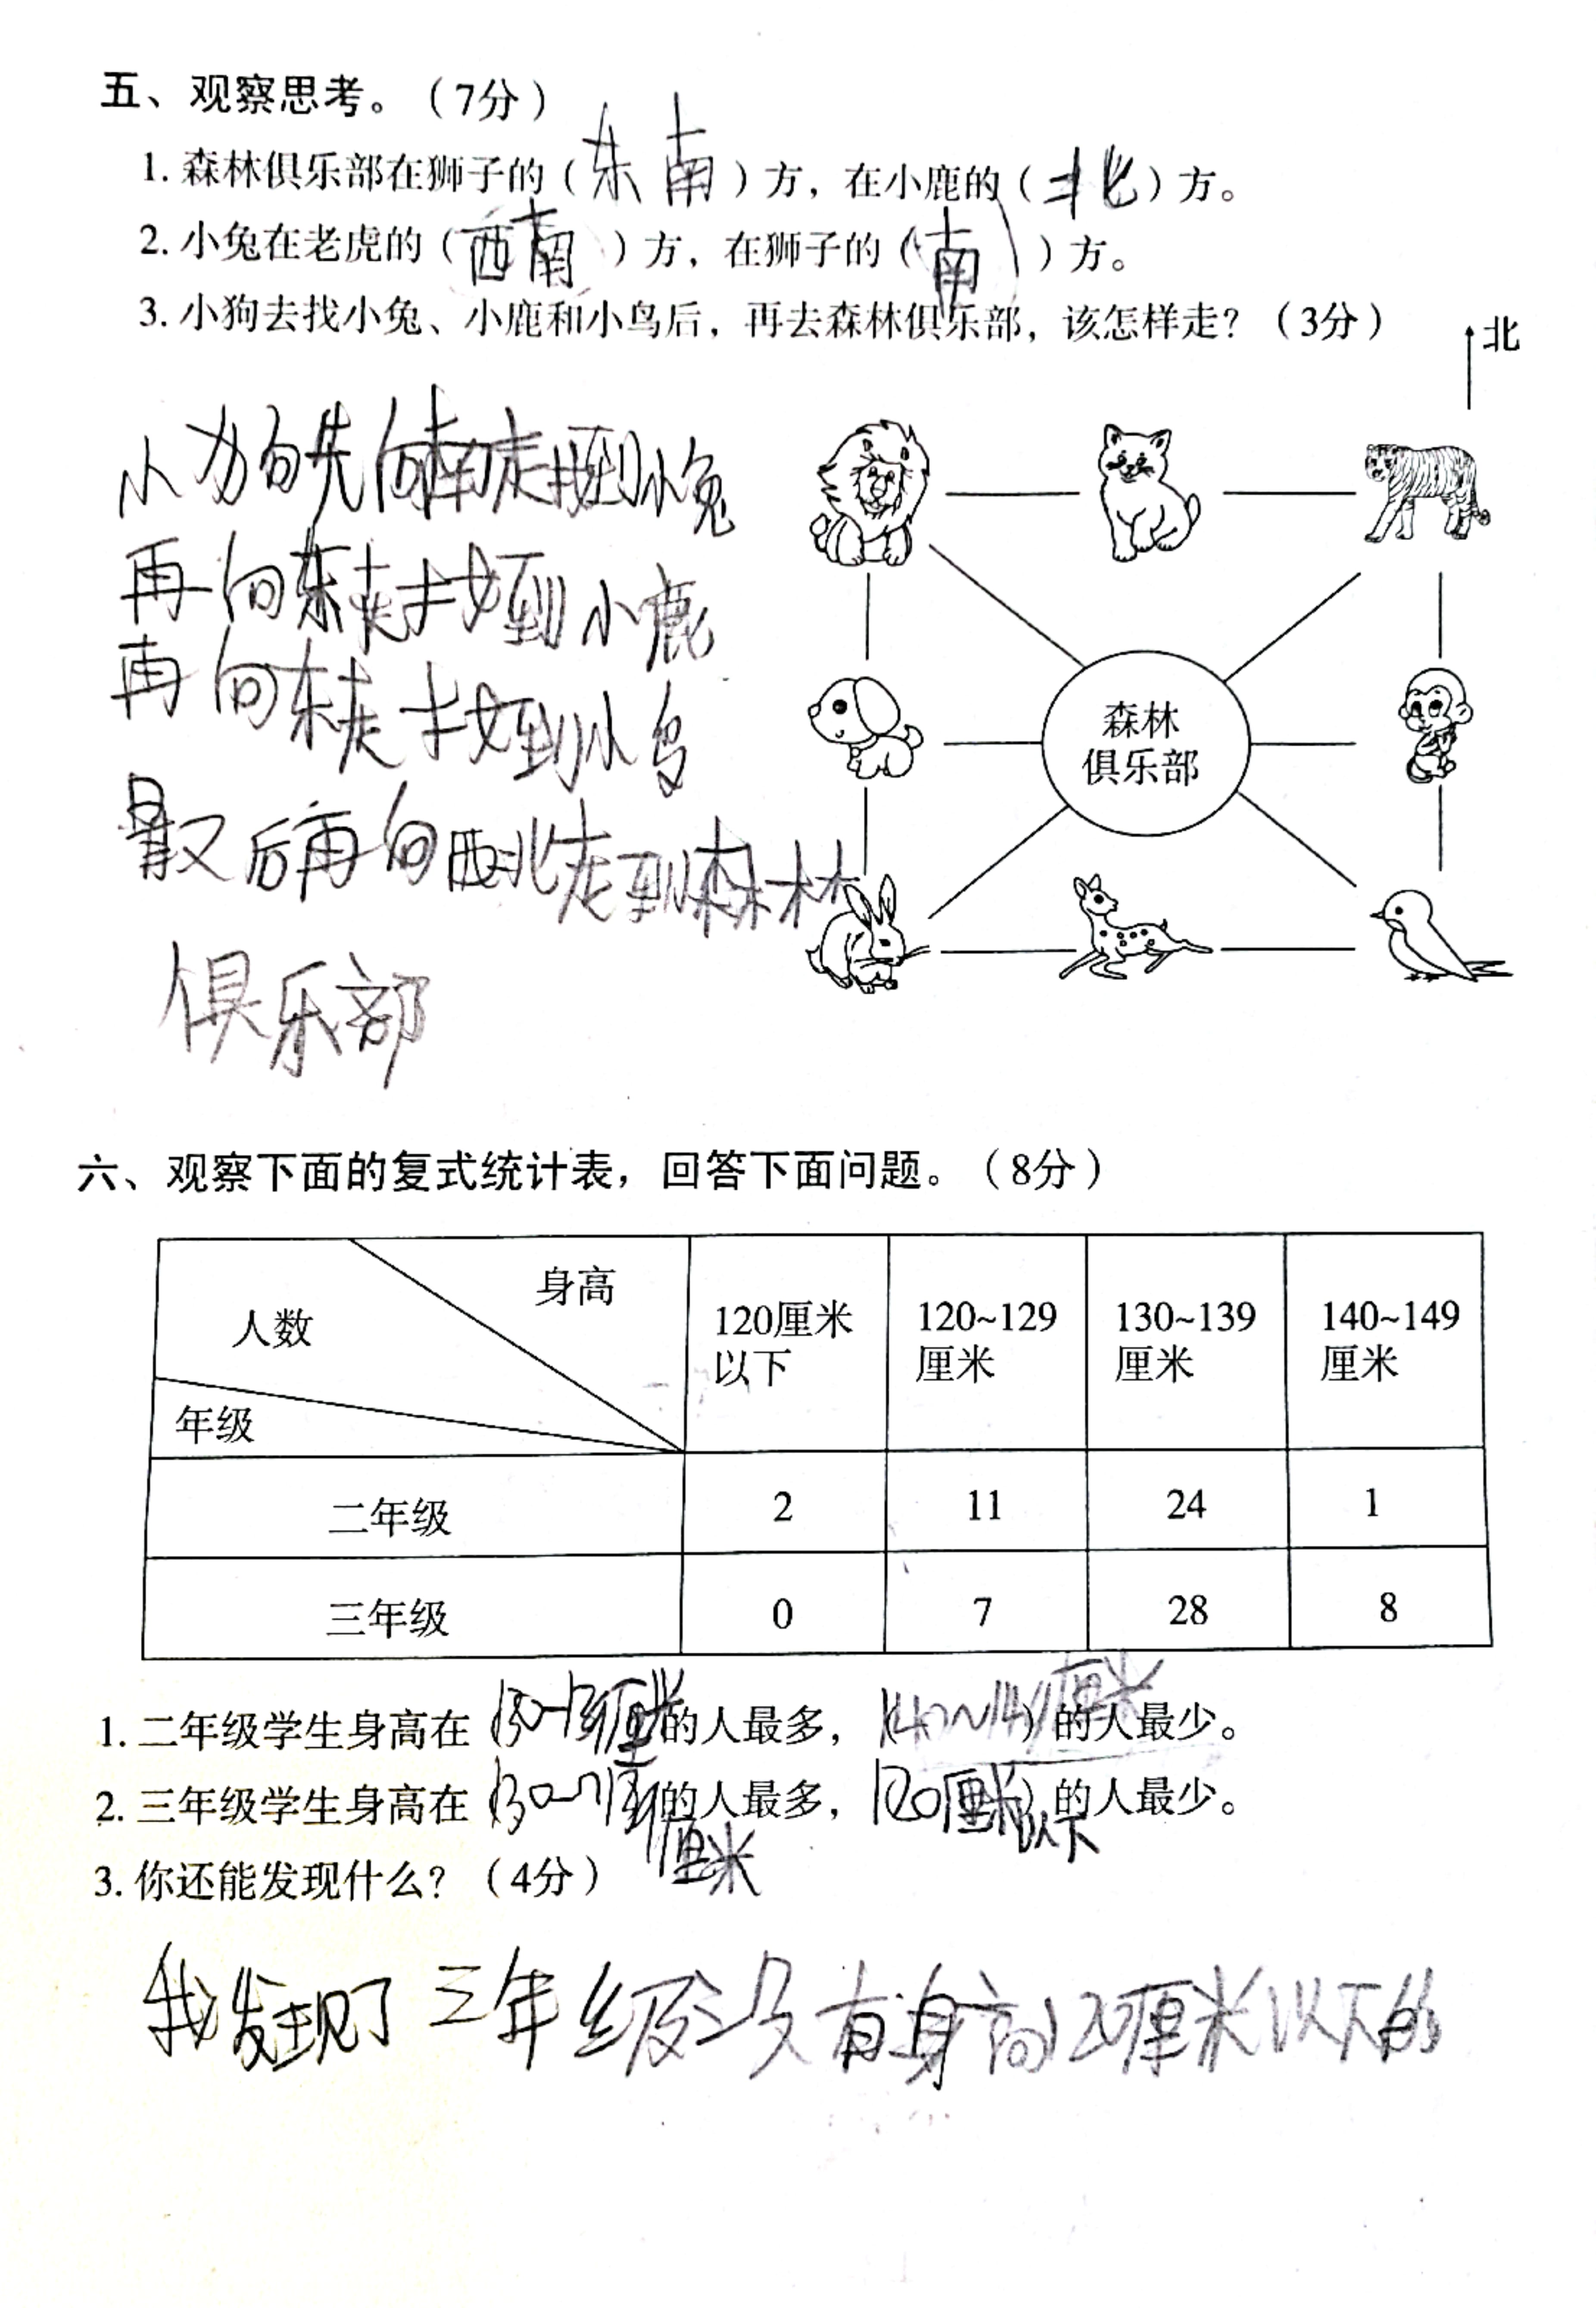 五、观察思考。（7分）
1. 森林俱乐部在狮子的（东南）方，在小鹿的（北）方。
2. 小兔在老虎的（西南）方，在狮子的（南）方。
3. 小狗去找小兔、小鹿和小鸟后，再去森林俱乐部，该怎样走？（3分）
北
小狗先向南走找到小兔
再向东走找到小鹿
再向东走找到小鸟
最后再向西北走到森林
俱乐部
森林
俱乐部
六、观察下面的复式统计表，回答下面问题。（8分）
人数 身高 年级 120厘米以下 120~129厘米 130~139厘米 140~149厘米
二年级 2 11 24 1
三年级 0 7 28 8
1. 二年级学生身高在（厘米的人最多，厘米）的人最少。
2. 三年级学生身高在（厘米的人最多，120厘米以下）的人最少。
3. 你还能发现什么？（4分）
我发现了三年级没有身高120厘米以下的